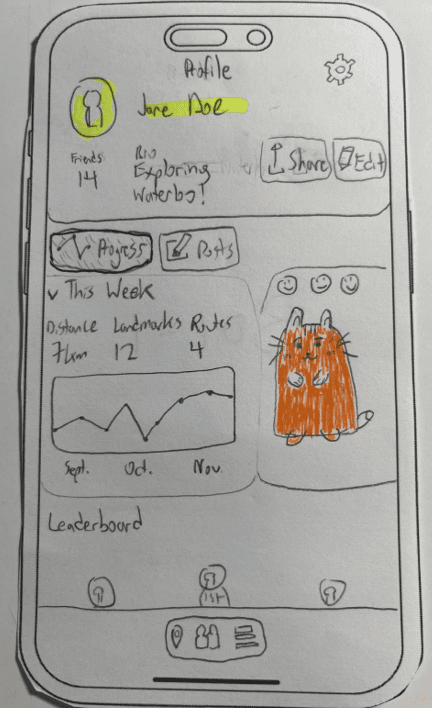 Profile
Jane Doe
Friends
14
Bio
Exploring
Waterloo!
Share
Edit
Progress
Posts
This Week
Distance Landmarks Routes
7km 12 4
Sept. Oct. Nov.
Leaderboard
1st